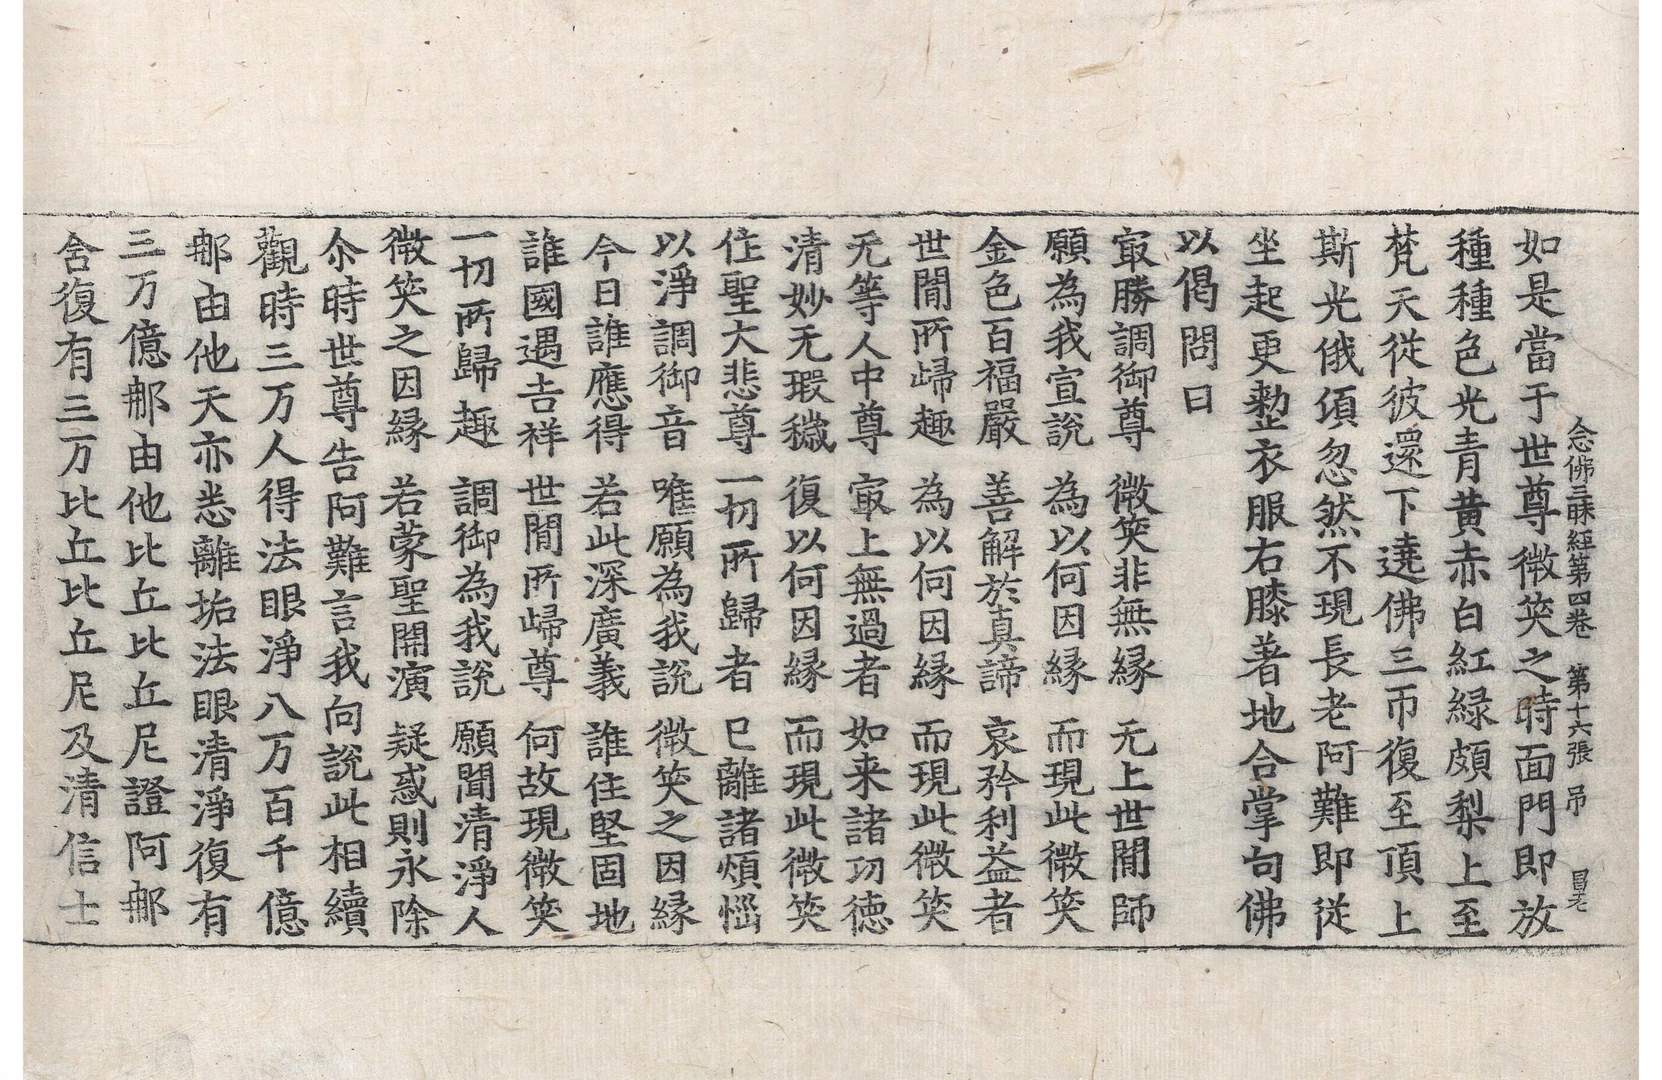 念佛三昧經第四卷　第十六張　吊
如是當于世尊微笑之時面門即放
種種色光青黃赤白紅緑頗梨上至
梵天從彼還下遶佛三帀復至頂上
斯光俄須忽然不現長老阿難即從
坐起更整衣服右膝著地合掌向佛
以偈問曰
㝡勝調御尊　微笑非無緣　无上世間師
願為我宣說　為以何因緣　而現此微笑
金色百福嚴　善解於真諦　哀矜利益者
世間所歸趣　為以何因緣　而現此微笑
无等人中尊　㝡上無過者　如来諸功德
清妙无瑕穢　復以何因緣　而現此微笑
住聖大悲尊　一切所歸者　已離諸煩惱
以淨調御音　唯願為我說　微笑之因緣
今日誰應得　若此深廣義　誰住堅固地
誰國遇吉祥　世間所歸尊　何故現微笑
一切所歸趣　調御為我說　願聞清淨人
微笑之因緣　若蒙聖開演　疑惑則永除
尒時世尊告阿難言我向說此相續
觀時三万人得法眼淨八万百千億
那由他天亦悉離垢法眼清淨復有
三万億那由他比丘比丘尼證阿那
含復有三万比丘比丘尼及清信士